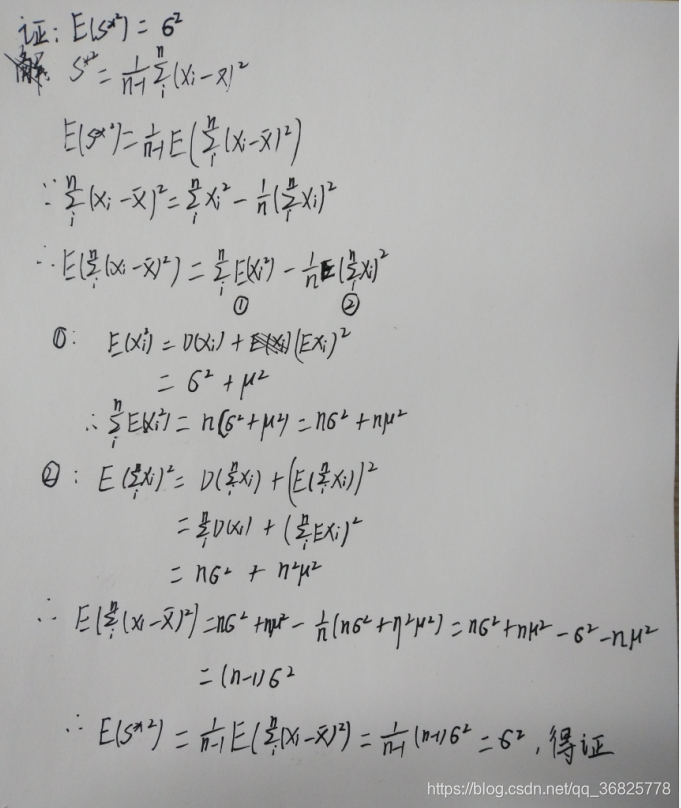 证: E(S*²) = σ²
解: S*² = 1/(n-1) Σᵢⁿ (Xi - X̄)²
E(S*²) = 1/(n-1) E(Σᵢⁿ (Xi - X̄)²)
∵ Σᵢⁿ (Xi - X̄)² = Σᵢⁿ Xi² - 1/n (Σᵢⁿ Xi)²
∴ E(Σᵢⁿ (Xi - X̄)²) = Σᵢⁿ E(Xi²) - 1/n E(Σᵢⁿ Xi)²
① ②
①: E(Xi²) = D(Xi) + (EXi)²
= σ² + μ²
∴ Σᵢⁿ E(Xi²) = n(σ² + μ²) = nσ² + nμ²
②: E(Σᵢⁿ Xi)² = D(Σᵢⁿ Xi) + (E(Σᵢⁿ Xi))²
= Σᵢⁿ D(Xi) + (Σᵢⁿ EXi)²
= nσ² + n²μ²
∴ E(Σᵢⁿ (Xi - X̄)²) = nσ² + nμ² - 1/n (nσ² + n²μ²) = nσ² + nμ² - σ² - nμ²
= (n-1)σ²
∴ E(S*²) = 1/(n-1) E(Σᵢⁿ (Xi - X̄)²) = 1/(n-1) (n-1)σ² = σ², 得证
https://blog.csdn.net/qq_36825778